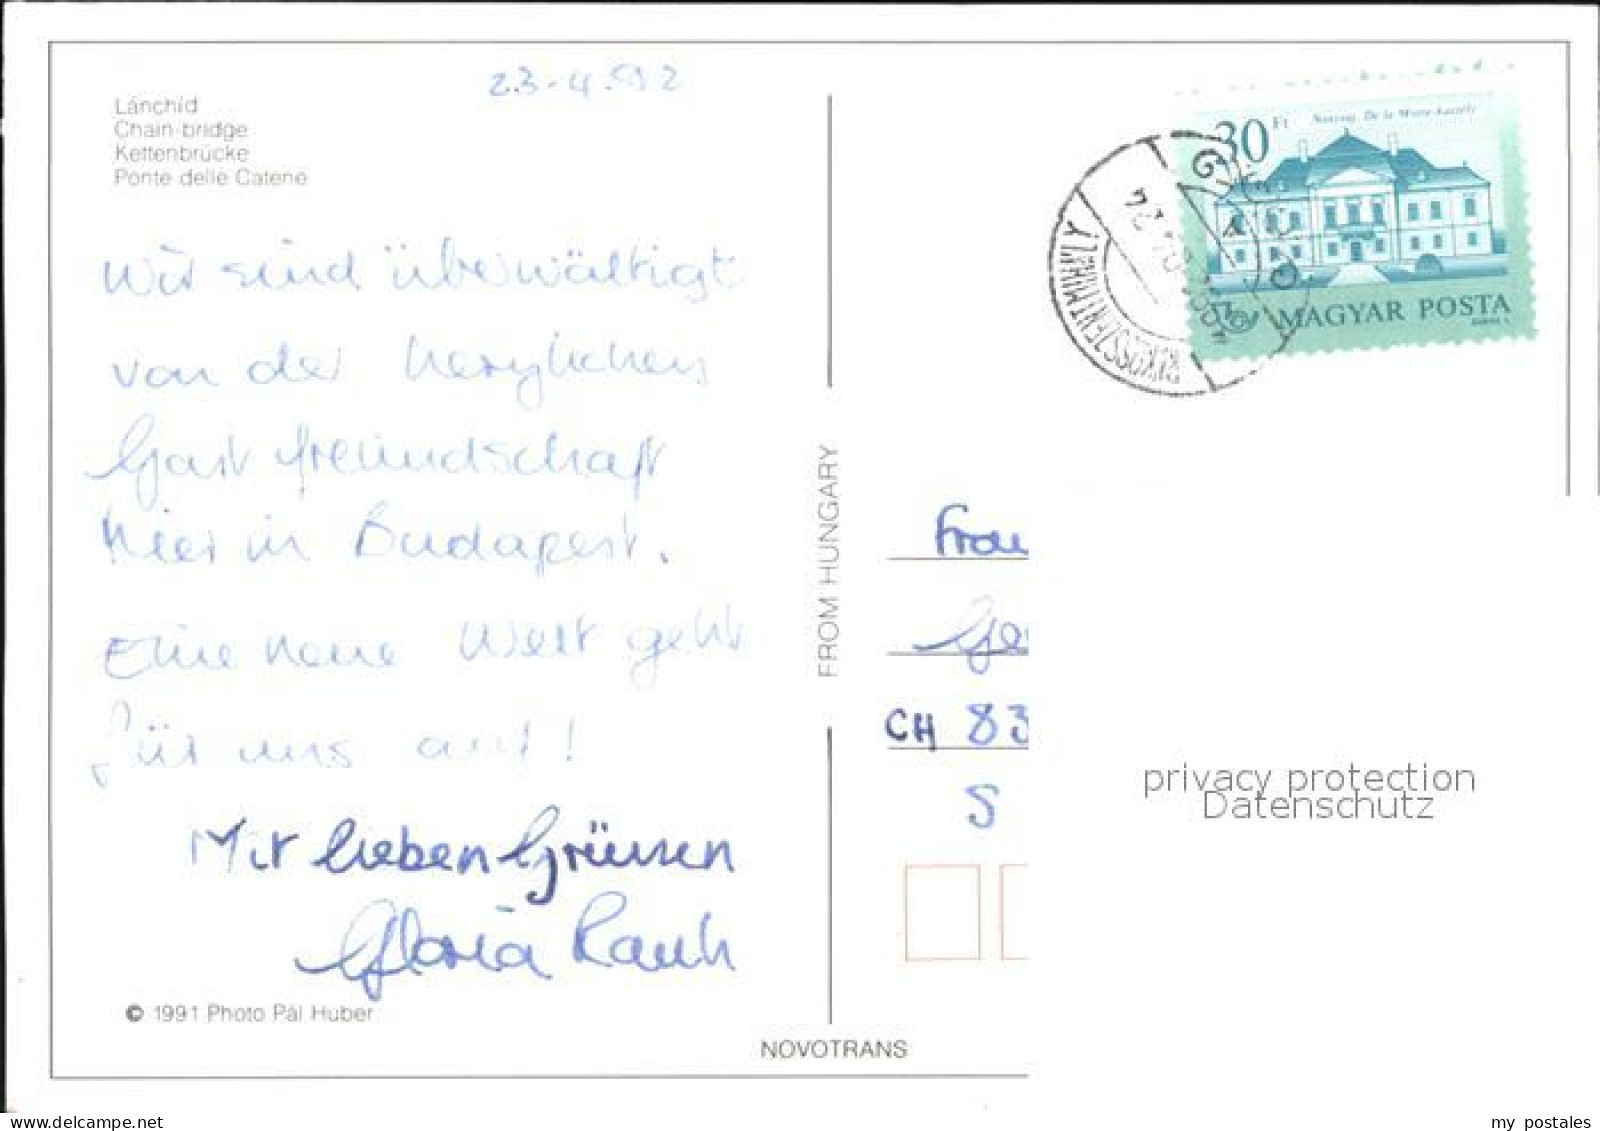 23.4.92
Lánchíd
Chain-bridge
Kettenbrücke
Ponte delle Catene
Wir sind überwältigt
von der herzlichen
Gastfreundschaft
hier in Budapest.
Eine neue Welt geht
für uns auf!
Mit lieben Grüssen
Gloria Rauh
© 1991 Photo Pál Huber
NOVOTRANS
FROM HUNGARY
30 Ft
De la Motte-kastély
MAGYAR POSTA
KISKUNSSZENTMIHÁLY
Frau
CH 83
S
privacy protection
Datenschutz
delcampe.net
my_postales